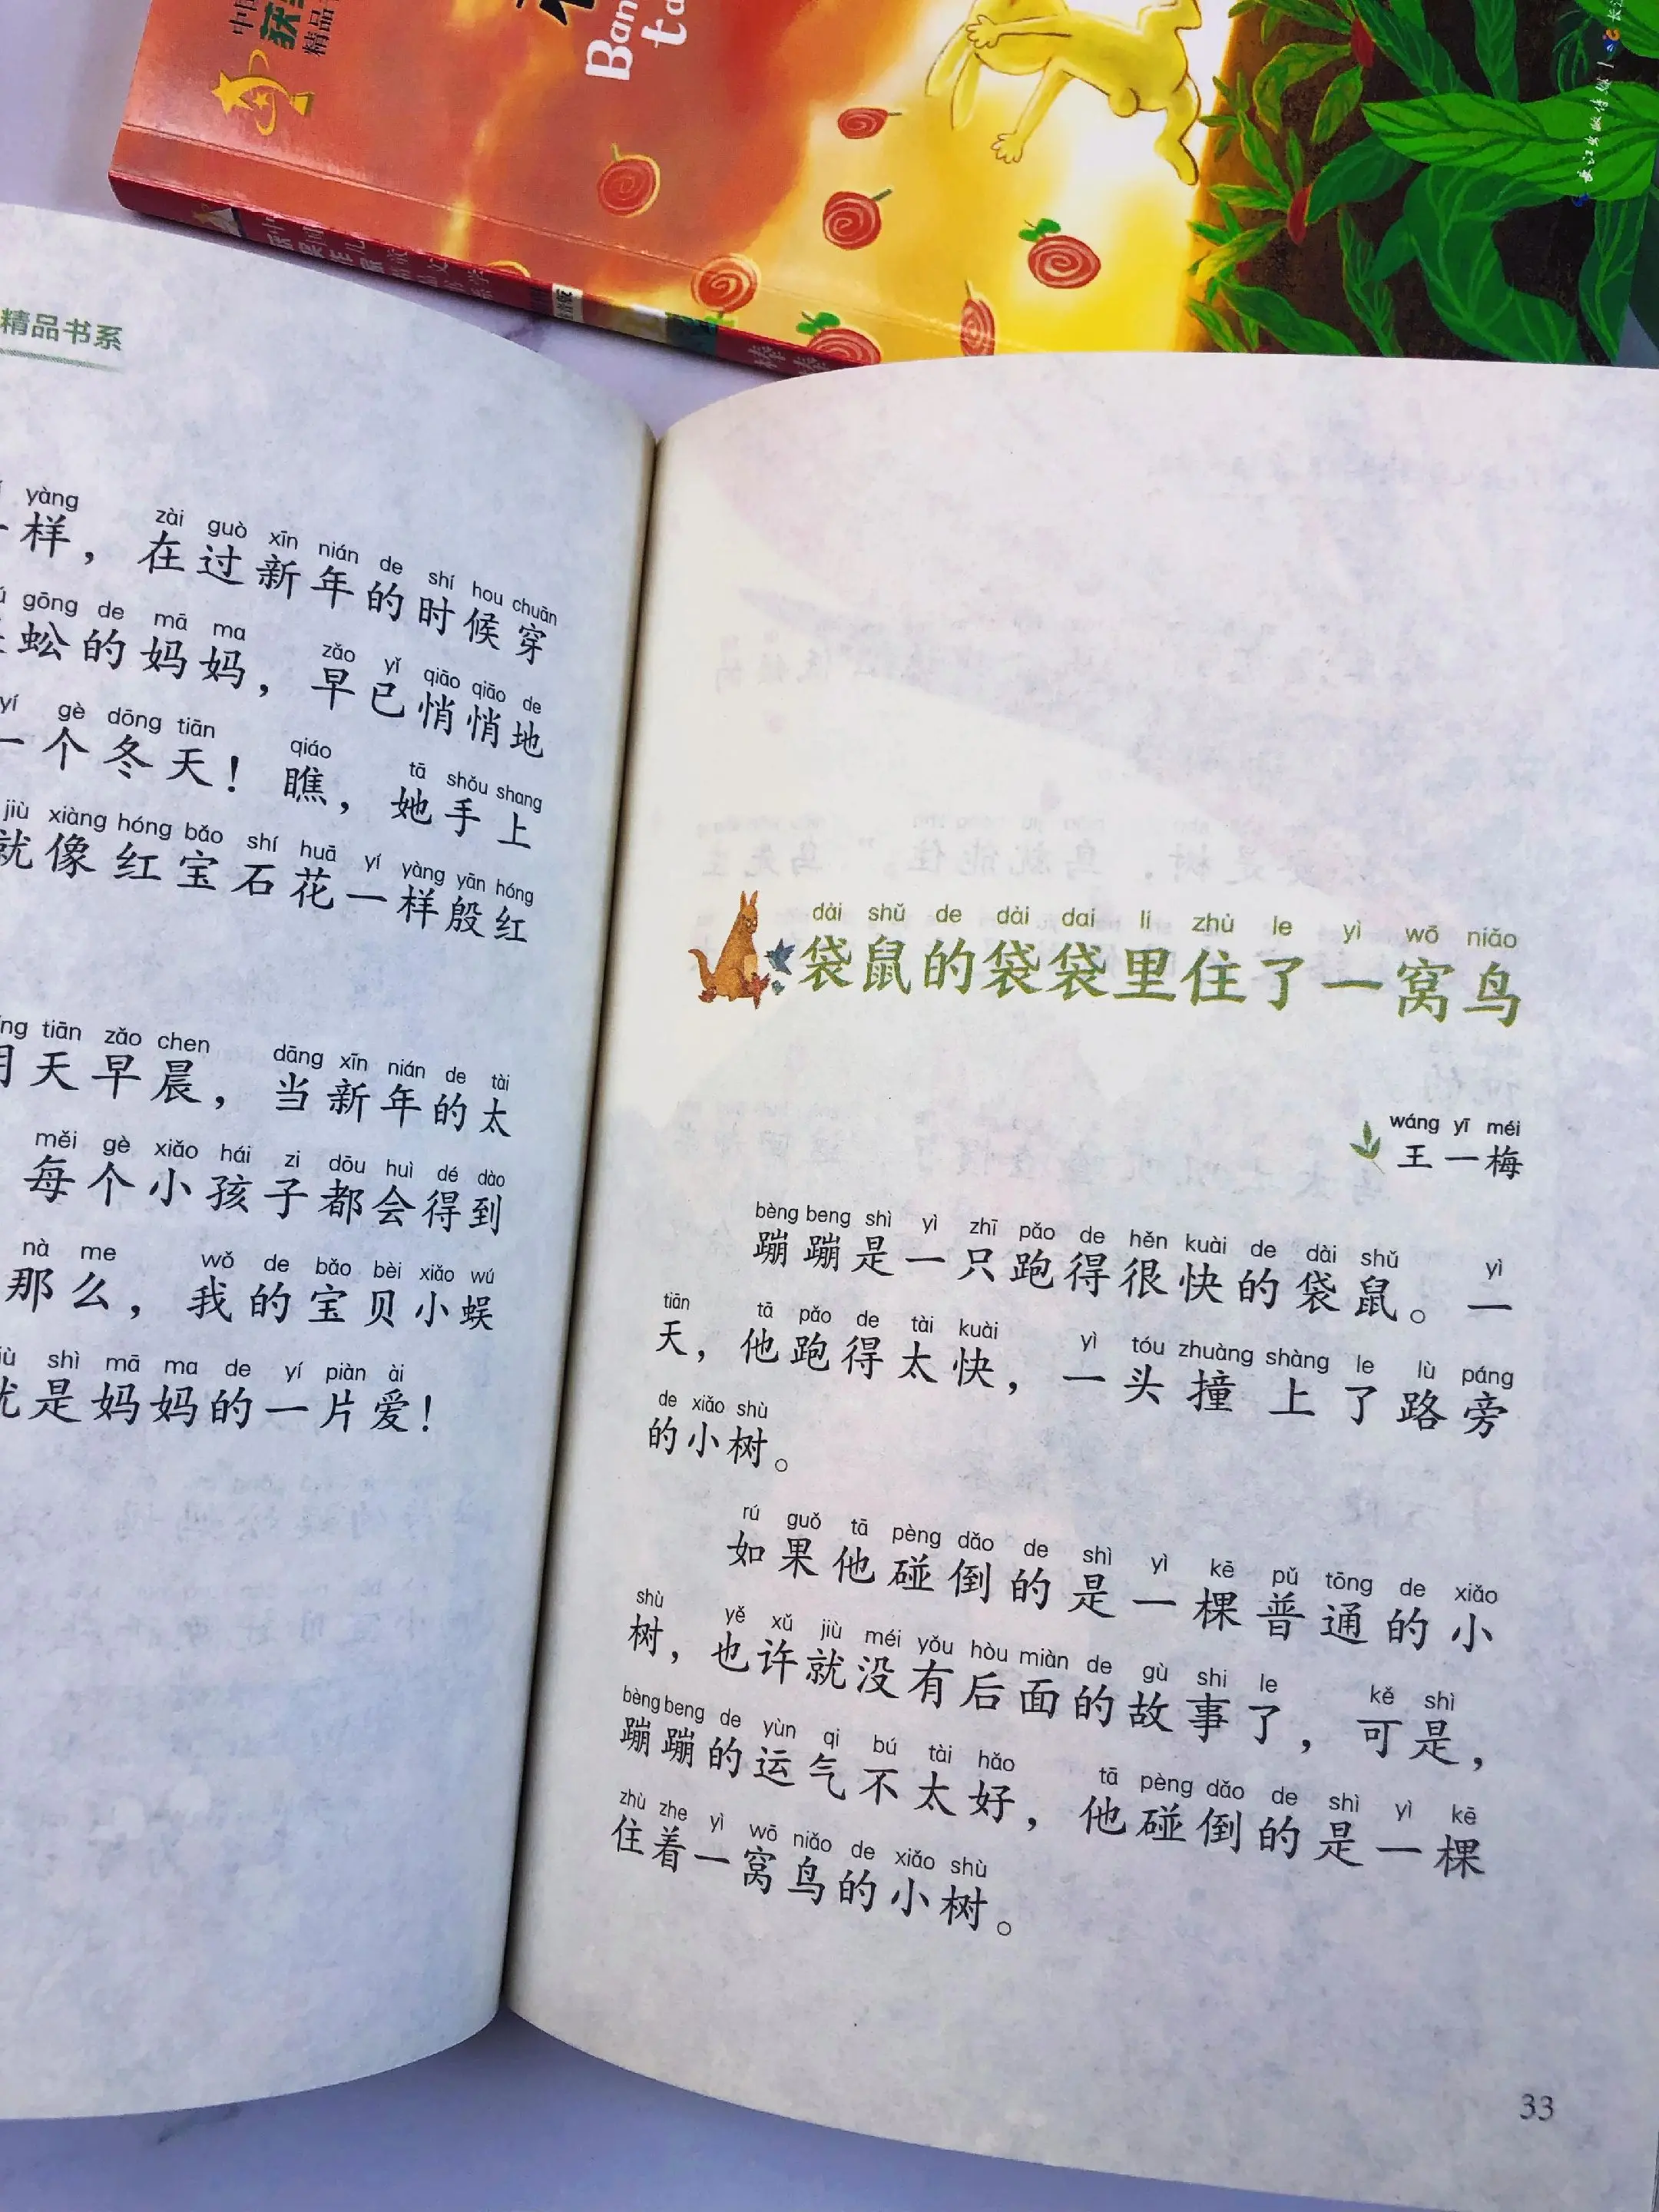 精品书系
yàng zài guò xīn nián de shí hou chuān
一样，在过新年的时候穿
gōng de mā ma zǎo yǐ qiāo qiāo de
蚣的妈妈，早已悄悄地
yí gè dōng tiān qiáo tā shǒu shang
一个冬天！瞧，她手上
jiù xiàng hóng bǎo shí huā yí yàng yān hóng
就像红宝石花一样殷红
tiān zǎo chen dāng xīn nián de tài
天早晨，当新年的太
měi gè xiǎo hái zi dōu huì dé dào
每个小孩子都会得到
nà me wǒ de bǎo bèi xiǎo wú
那么，我的宝贝小蜈
shì mā ma de yí piàn ài
是妈妈的一片爱！
dài shǔ de dài dai li zhù le yì wō niǎo
袋鼠的袋袋里住了一窝鸟
wáng yī méi
王一梅
bèng beng shì yì zhī pǎo de hěn kuài de dài shǔ yì
蹦蹦是一只跑得很快的袋鼠。一
tiān tā pǎo de tài kuài yì tóu zhuàng shàng le lù páng
天，他跑得太快，一头撞上了路旁
de xiǎo shù
的小树。
rú guǒ tā pèng dǎo de shì yì kē pǔ tōng de xiǎo
如果他碰倒的是一棵普通的小
shù yě xǔ jiù méi yǒu hòu miàn de gù shi le kě shì
树，也许就没有后面的故事了，可是，
bèng beng de yùn qi bú tài hǎo tā pèng dǎo de shì yì kē
蹦蹦的运气不太好，他碰倒的是一棵
zhù zhe yì wō niǎo de xiǎo shù
住着一窝鸟的小树。
33